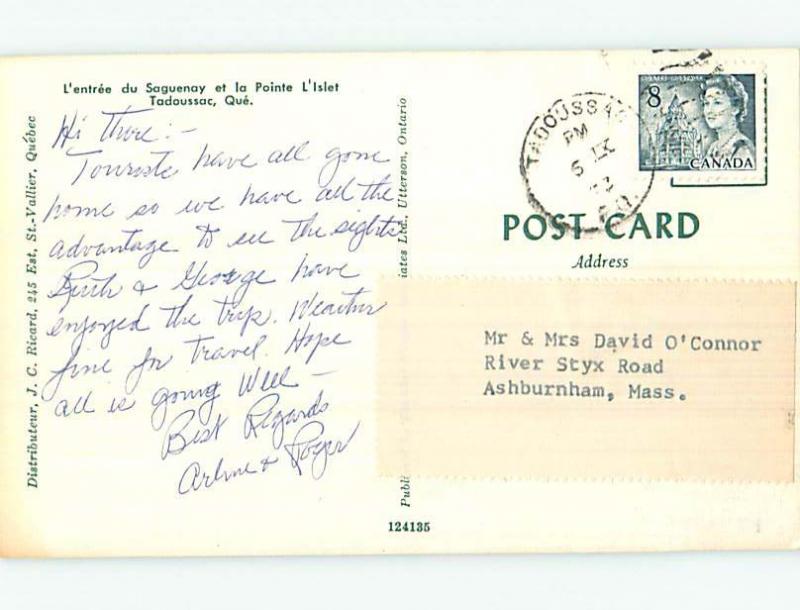 L'entrée du Saguenay et la Pointe L'Islet
Tadoussac, Qué.
Hi There:-
Tourists have all gone
home so we have all the
advantage to see the sights
Ruth & George have
enjoyed the trip. Weather
fine for travel. Hope
all is going Well -
Best Regards
Arlene & Roger
Distributeur, J. C. Ricard, 245 Est, St.-Vallier, Québec
iates Ltd., Utterson, Ontario
Publi
124135
TADOUSSAC
PM
5 IX
8
CANADA
POST CARD
Address
Mr & Mrs David O'Connor
River Styx Road
Ashburnham, Mass.